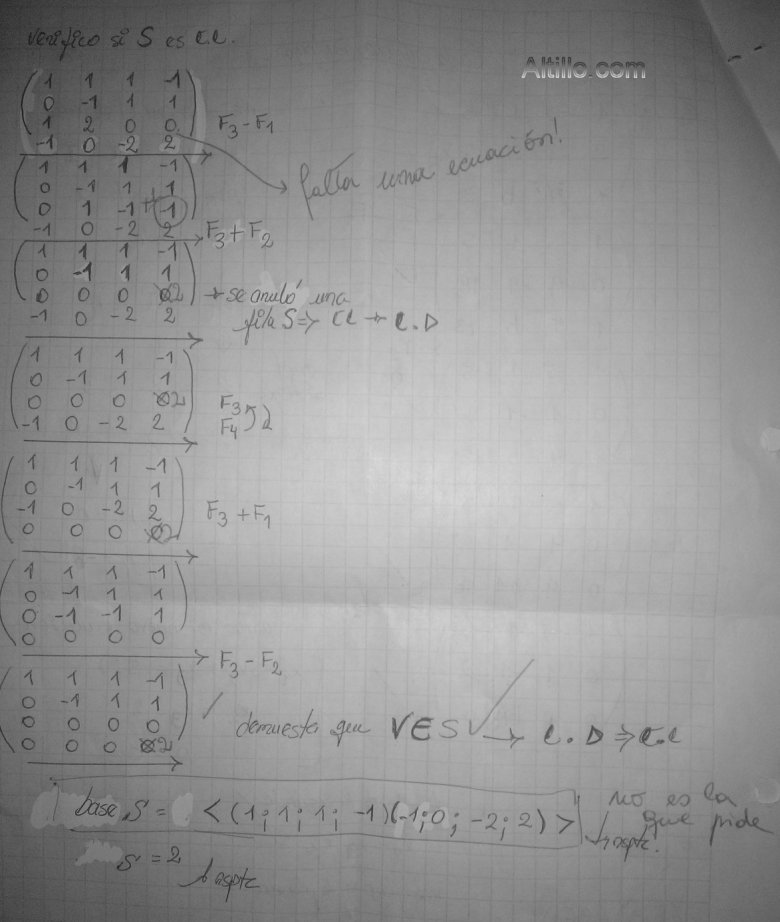 verifico si S es C.L.
Altillo.com
1 1 1 -1
0 -1 1 1
1 2 0 0
-1 0 -2 2
F3 - F1
falta una ecuación!
1 1 1 -1
0 -1 1 1
0 1 -1 -1
-1 0 -2 2
F3 + F2
1 1 1 -1
0 -1 1 1
0 0 0 2
-1 0 -2 2
→ se anuló una
fila S => CL → L.D
1 1 1 -1
0 -1 1 1
0 0 0 2
-1 0 -2 2
F3
F4
1 1 1 -1
0 -1 1 1
-1 0 -2 2
0 0 0 2
F3 + F1
1 1 1 -1
0 -1 1 1
0 -1 -1 1
0 0 0 0
F3 - F2
1 1 1 -1
0 -1 1 1
0 0 0 0
0 0 0 2
demuestra que V E S → L.D => C.L
base S = < (1; 1; 1; -1)(-1; 0; -2; 2) >
no es la
que pide
S = 2